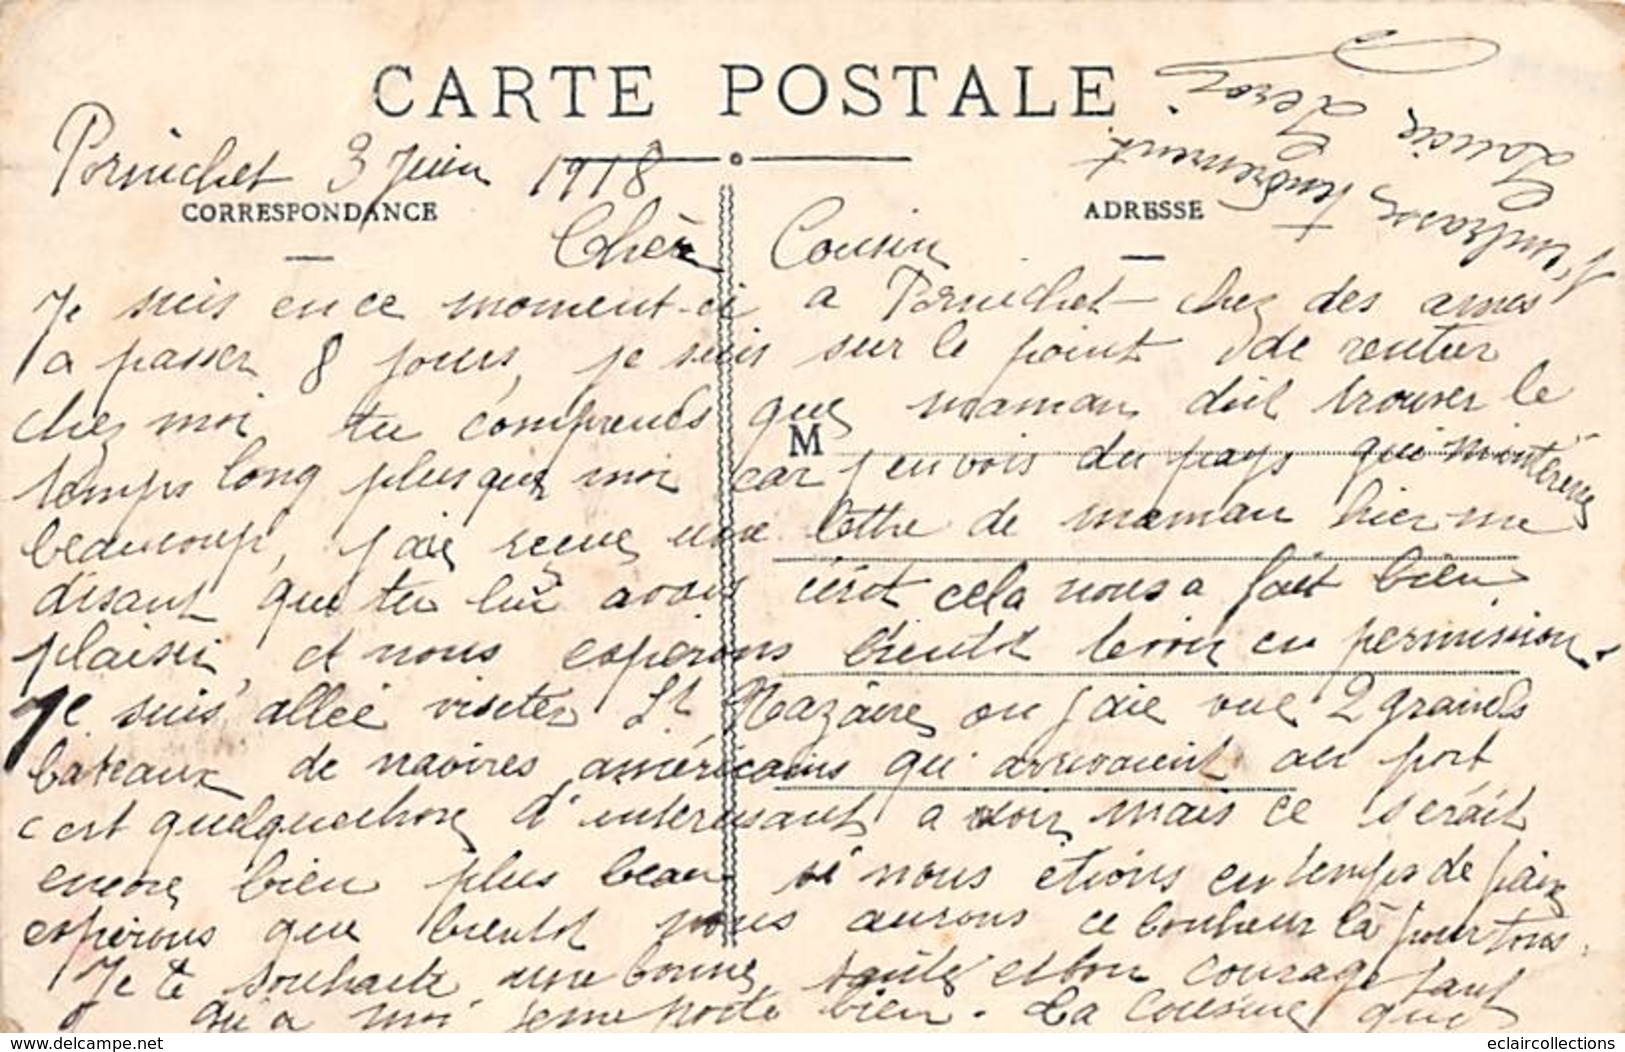 CARTE POSTALE
Pornichet 3 Juin 1918
CORRESPONDANCE
ADRESSE
Chèr Cousin
Je suis en ce moment-ci a Pornichet chez des amis
a passer 8 jours, je suis sur le point de rentrer
chez moi tu comprends que maman doit trouver le
M
temps long plus que moi car j'en vois du pays qui m'intéresse
beaucoup, j'aie reçue une lettre de maman hier me
disant que tu lui avais écrit cela nous a fait bien
plaisir et nous espérons bientot te voir en permission.
Je suis allée visiter St Nazaire ou j'aie vue 2 grands
bateaux de navires américains qui arrivaient au port
c'est quelquechose d'interessant a voir mais ce serait
encore bien plus beau si nous étions en temps de paix
espérons que bientot nous aurons ce bonheur là pour tous.
Je te souhaite une bonne santé et bon courage tant
qu'a moi je me porte bien. La cousine qui
t'embrasse tendrement.
Loucie
eclaircollections
www.delcampe.net